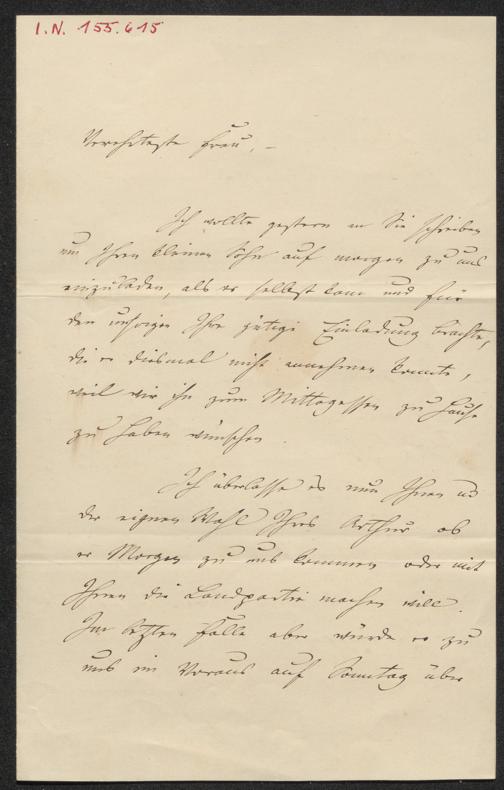 I.N. 155.615
Verehrteste Frau, –
Ich wollte gestern an Sie schreiben
um Ihren kleinen Sohn auf morgen zu uns
einzuladen, als er selbst kam und für
den unsrigen Ihre gütige Einladung brachte,
die er diesmal nicht annehmen konnte,
weil wir ihn zum Mittagessen zu Hause
zu haben wünschen.
Ich überlasse es nun Ihnen u
der eignen Wahl Ihres Arthur ob
er Morgen zu uns kommen oder mit
Ihnen die Landpartie machen will.
Im letzten Falle aber würde er zu
uns im Voraus auf Sonntag über